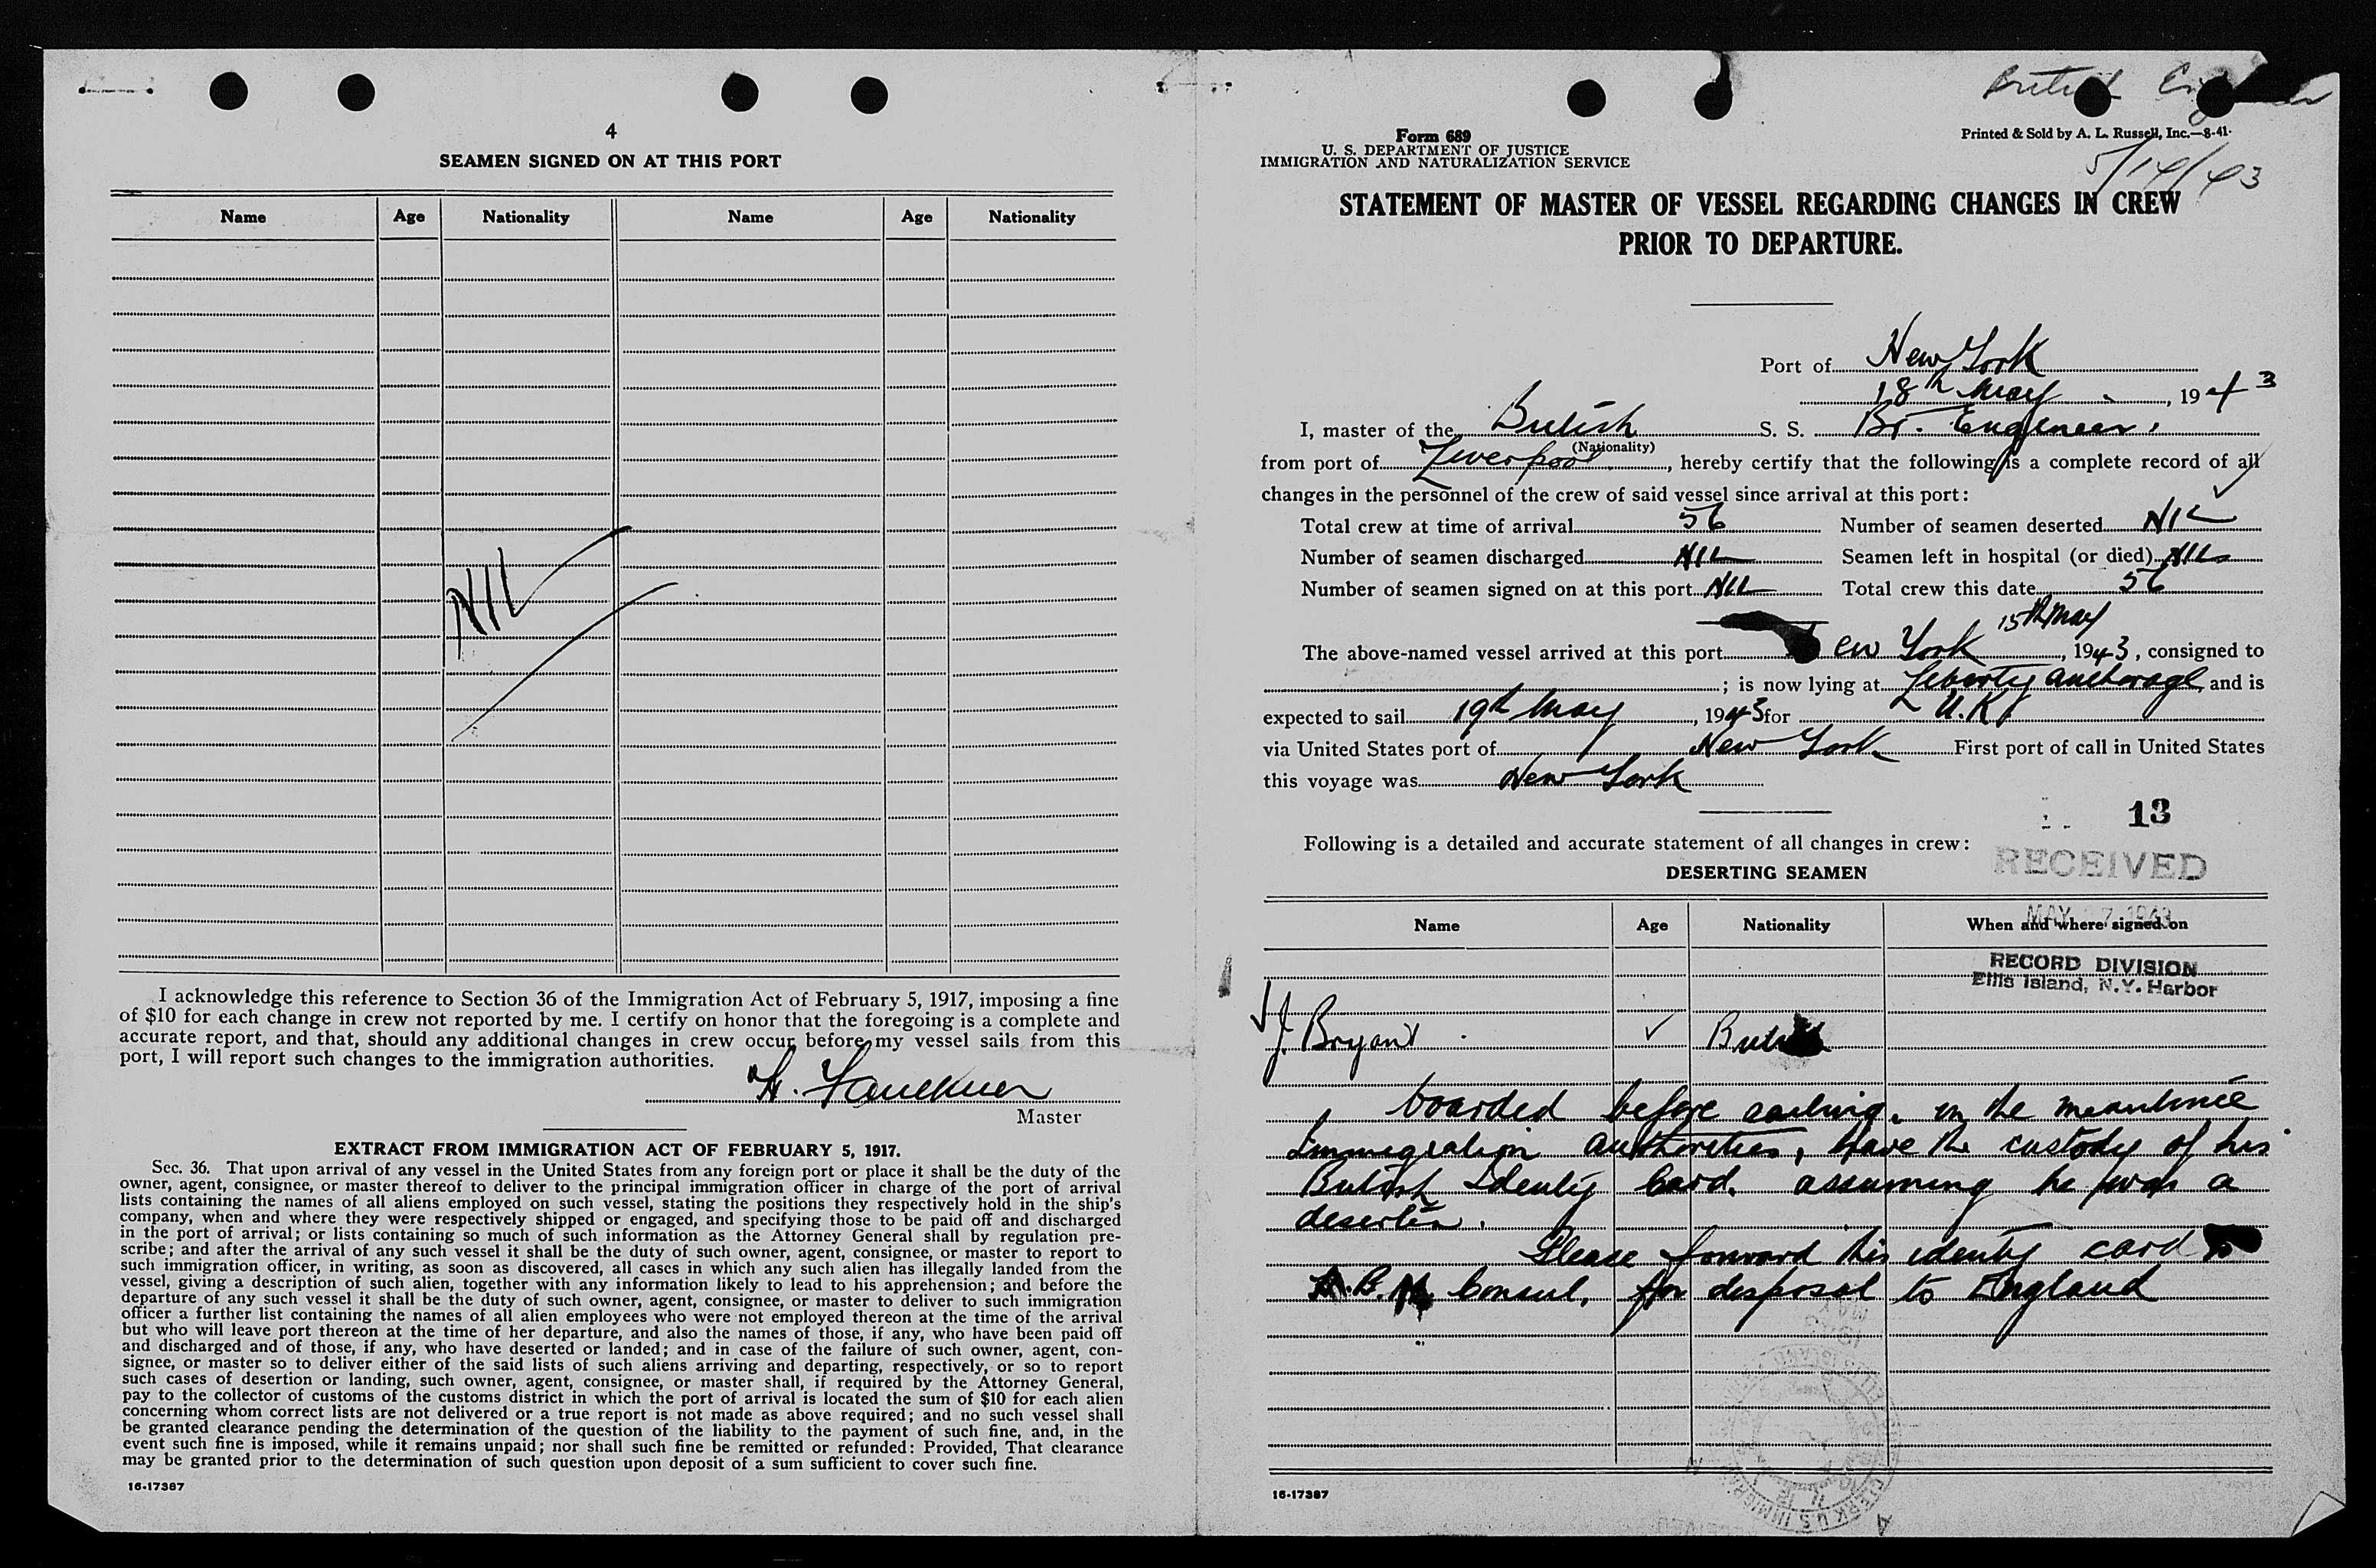 4
SEAMEN SIGNED ON AT THIS PORT
Name Age Nationality Name Age Nationality
NIL
I acknowledge this reference to Section 36 of the Immigration Act of February 5, 1917, imposing a fine
of $10 for each change in crew not reported by me. I certify on honor that the foregoing is a complete and
accurate report, and that, should any additional changes in crew occur before my vessel sails from this
port, I will report such changes to the immigration authorities.
H. Faulkner
Master
EXTRACT FROM IMMIGRATION ACT OF FEBRUARY 5, 1917.
Sec. 36. That upon arrival of any vessel in the United States from any foreign port or place it shall be the duty of the
owner, agent, consignee, or master thereof to deliver to the principal immigration officer in charge of the port of arrival
lists containing the names of all aliens employed on such vessel, stating the positions they respectively hold in the ship's
company, when and where they were respectively shipped or engaged, and specifying those to be paid off and discharged
in the port of arrival; or lists containing so much of such information as the Attorney General shall by regulation pre-
scribe; and after the arrival of any such vessel it shall be the duty of such owner, agent, consignee, or master to report to
such immigration officer, in writing, as soon as discovered, all cases in which any such alien has illegally landed from the
vessel, giving a description of such alien, together with any information likely to lead to his apprehension; and before the
departure of any such vessel it shall be the duty of such owner, agent, consignee, or master to deliver to such immigration
officer a further list containing the names of all alien employees who were not employed thereon at the time of the arrival
but who will leave port thereon at the time of her departure, and also the names of those, if any, who have been paid off
and discharged and of those, if any, who have deserted or landed; and in case of the failure of such owner, agent, con-
signee, or master so to deliver either of the said lists of such aliens arriving and departing, respectively, or so to report
such cases of desertion or landing, such owner, agent, consignee, or master shall, if required by the Attorney General,
pay to the collector of customs of the customs district in which the port of arrival is located the sum of $10 for each alien
concerning whom correct lists are not delivered or a true report is not made as above required; and no such vessel shall
be granted clearance pending the determination of the question of the liability to the payment of such fine, and, in the
event such fine is imposed, while it remains unpaid; nor shall such fine be remitted or refunded: Provided, That clearance
may be granted prior to the determination of such question upon deposit of a sum sufficient to cover such fine.
16-17387
British
Form 689
U. S. DEPARTMENT OF JUSTICE
IMMIGRATION AND NATURALIZATION SERVICE
Printed & Sold by A. L. Russell, Inc.—8-41.
5/14/43
STATEMENT OF MASTER OF VESSEL REGARDING CHANGES IN CREW
PRIOR TO DEPARTURE.
Port of New York
18th May, 1943
I, master of the British S. S. Br. Engineer.
(Nationality)
from port of Liverpool, hereby certify that the following is a complete record of all
changes in the personnel of the crew of said vessel since arrival at this port:
Total crew at time of arrival 56 Number of seamen deserted NIL
Number of seamen discharged NIL Seamen left in hospital (or died) NIL
Number of seamen signed on at this port NIL Total crew this date 56
15th May
The above-named vessel arrived at this port New York, 1943, consigned to
; is now lying at Liberty anchorage and is
expected to sail 19th May, 1943 for U.K.
via United States port of New York First port of call in United States
this voyage was New York
13
Following is a detailed and accurate statement of all changes in crew:
RECEIVED
DESERTING SEAMEN
MAY 7 1943
Name Age Nationality When and where signed on
RECORD DIVISION
Ellis Island, N.Y. Harbor
J. Bryant British
boarded before sailing, in the meantime
Immigration authorities, have the custody of his
British Idenity Card. assuming he was a
desertin.
Please forward his idenity card to
H.B.M. Consul, for disposal to England
16-17387